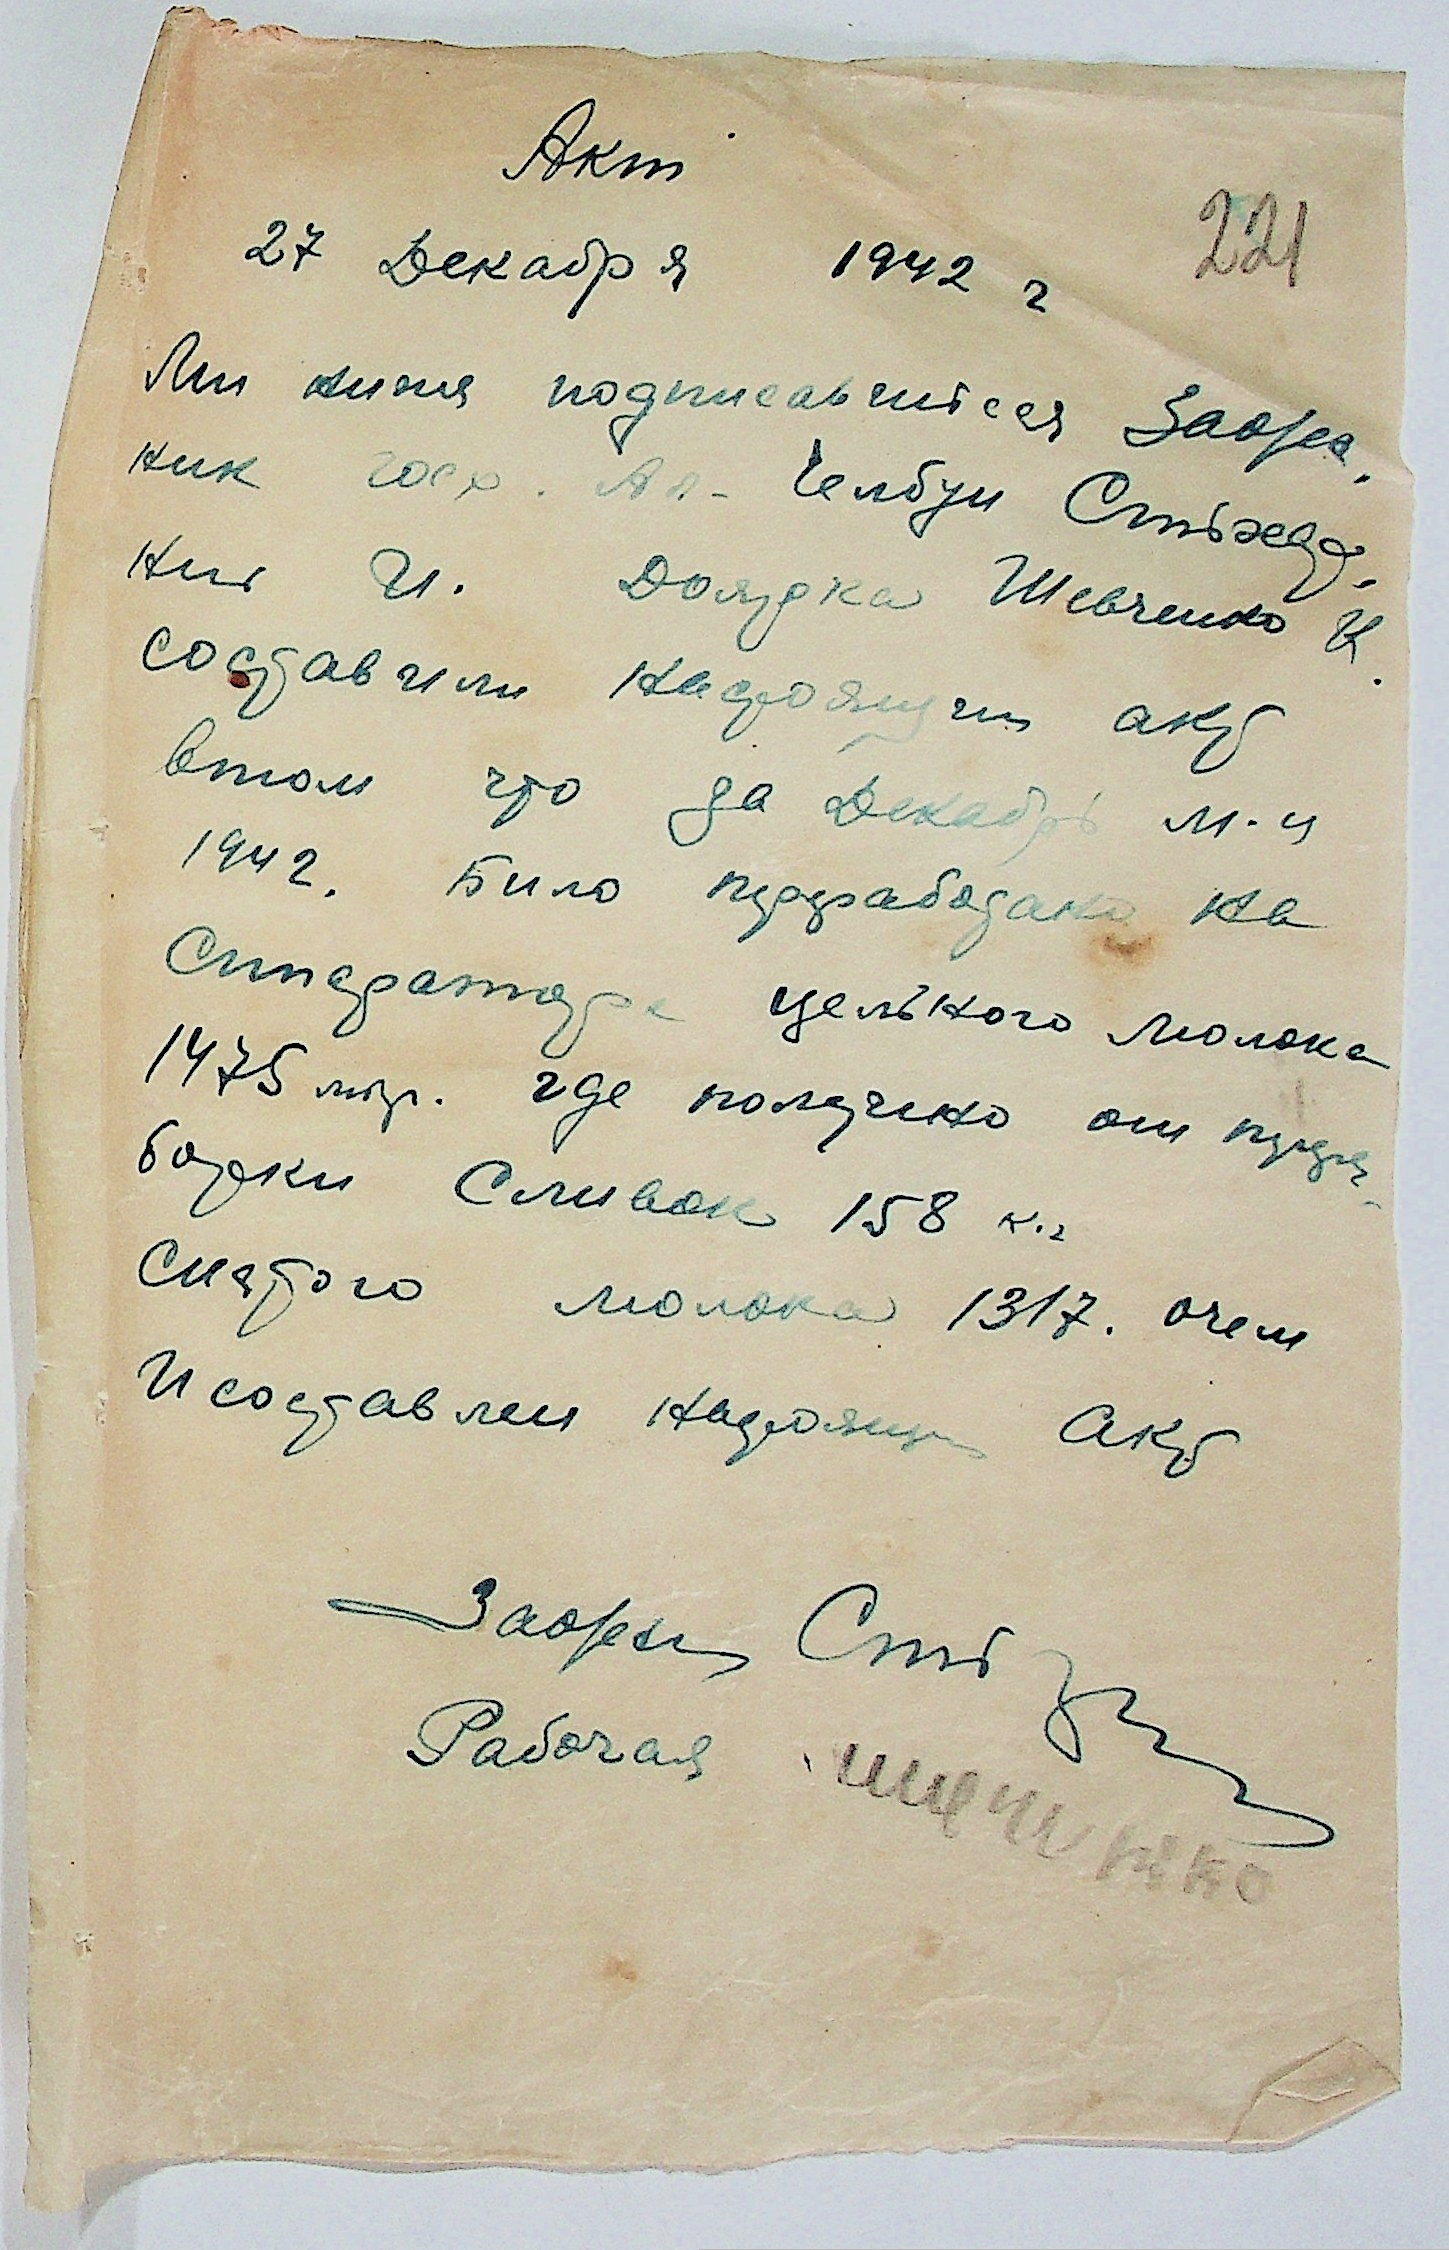 Акт
27 Декабря 1942 г
221
Ми нижя подписавшиеся
ник госх. Ал- Челбуи
ний И. Доярка Шевченко К.
составили настоящий акт
втом что за Декабрь м-ц
1942. Било пуруработано на
Сипараторе цельного молока
1475 литр. где получино от пурура-
ботки Сливок 158 к.г
Снятого молока 1317. очем
И составлен настоящий Акт
Рабочая